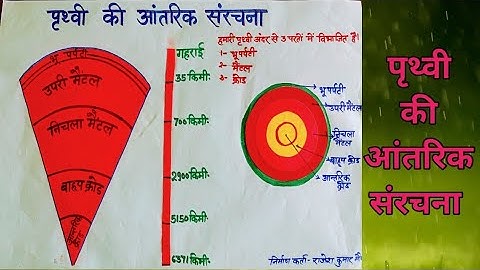 पृथ्वी की आंतरिक संरचना
हमारी पृथ्वी अंदर से 3 परतों में विभाजित है।
1- भूपर्पटी
2- मैंटल
3- क्रोड
गहराई
35 किमी.
700 किमी.
2900 किमी.
5150 किमी.
6371 किमी.
भूपर्पटी
उपरी मैंटल
निचला मैंटल
बाहय क्रोड
आन्तरिक क्रोड
भूपर्पटी
उपरी मैंटल
निचला
मैंटल
बाहय क्रोड
आन्तरिक
क्रोड
निर्माण कर्ता - राजेश कुमार
पृथ्वी
की
आंतरिक
संरचना